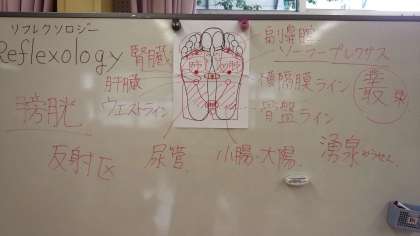 リフレクソロジー
Reflexology
腎臓
副腎臓
ソーラープレクサス
肝臓
横隔膜ライン
叢
ウエストライン
骨盤ライン
膀胱
反射区
尿管
小腸・大腸
湧泉 ゆうせん